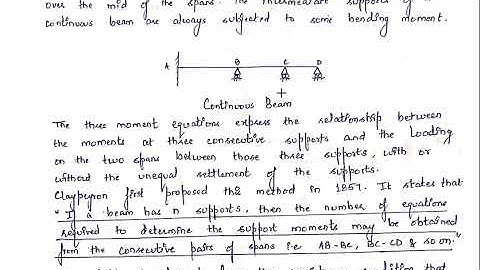 over the mid of the spans. The intermediate supports of a
continuous beam are always subjected to some bending moment.
A B C D
Continuous Beam
The three moment equations express the relationship between
the moments at three consecutive supports and the Loading
on the two spans between those three supports, with or
without the unequal settlement of the supports.
Claypeyron first proposed this method in 1857. It states that
"If a beam has n supports, then the number of equations
required to determine the support moments may be obtained
from the consecutive pairs of spans i.e AB-BC, BC-CD & so on."
that